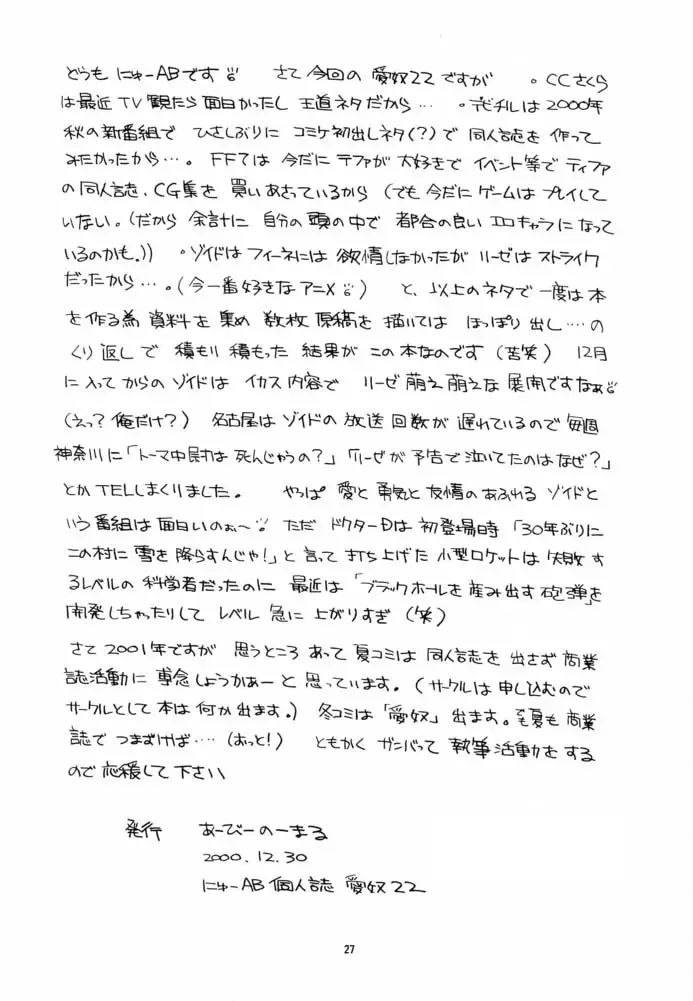 どうも にゅーABです さて今回の 愛奴22ですが 。CCさくら
は最近 TV観たら面白かったし 王道ネタだから…。デビチルは2000年
秋の新番組で ひさしぶりに コミケ初出しネタ(?)で 同人誌を作って
みたかったから…。FF7は 今だに ティファが大好きで イベント等で ティファ
の同人誌、CG集を 買いあさっているから (でも今だに ゲームは プレイして
いない。(だから 余計に 自分の頭の中で 都合の良いエロキャラになって
いるのかも。)) 。ゾイドはフィーネには 欲情しなかったが リーゼはストライク
だったから…。(今一番好きなアニメ) と、以上のネタで一度は本
を作る為 資料を集め 数枚原稿を 描いては ほっぽり出し…の
くり返しで 積もり積もった 結果が この本なのです (苦笑) 12月
に入ってからの ゾイドは イカス内容で リーゼ萌え萌えな 展開ですなぁ
(えっ?俺だけ?) 名古屋はゾイドの放送回数が遅れているので毎週
神奈川に「トーマ中尉は死んじゃうの?」「リーゼが予告で泣いてたのはなぜ?」
とかTELしまくりました。 やっぱ 愛と勇気と友情のあふれる ゾイドと
いう番組は面白いのぉ〜 ただ ドクターDは初登場時「30年ぶりに
この村に雪を降らすんじゃ!」と言って打ち上げた小型ロケットは失敗す
るレベルの科学者だったのに 最近は「ブラックホールを産み出す砲弾」を
開発しちゃったりして レベル急に上がりすぎ (笑)
さて2001年ですが 思うところあって 夏コミは同人誌を出さず商業
誌活動に専念しようかぁーと思っています。(サークルは申し込むので
サークルとして本は何か出ます。) 冬コミは「愛奴」出ます。でも夏も商業
誌で つまずけば…(おっと!) ともかく ガンバって 執筆活動をする
ので応援して下さい
発行 あーびーのーまる
2000.12.30
にゅーAB個人誌 愛奴22
27